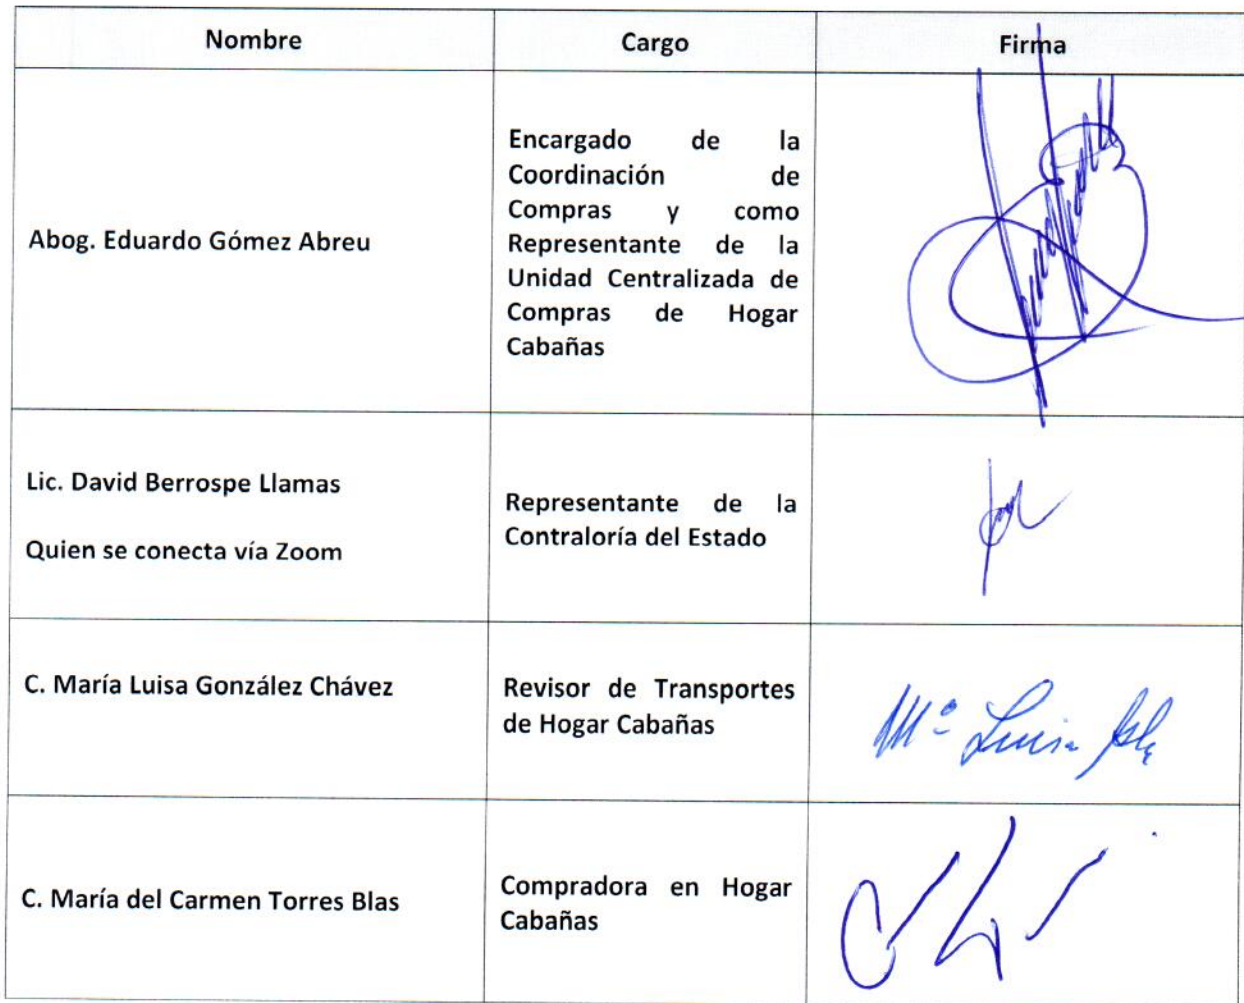 Nombre Cargo Firma
Abog. Eduardo Gómez Abreu
Encargado de la
Coordinación de
Compras y como
Representante de la
Unidad Centralizada de
Compras de Hogar
Cabañas
Lic. David Berrospe Llamas
Quien se conecta vía Zoom
Representante de la
Contraloría del Estado
C. María Luisa González Chávez
Revisor de Transportes
de Hogar Cabañas
Mª Luisa
C. María del Carmen Torres Blas
Compradora en Hogar
Cabañas